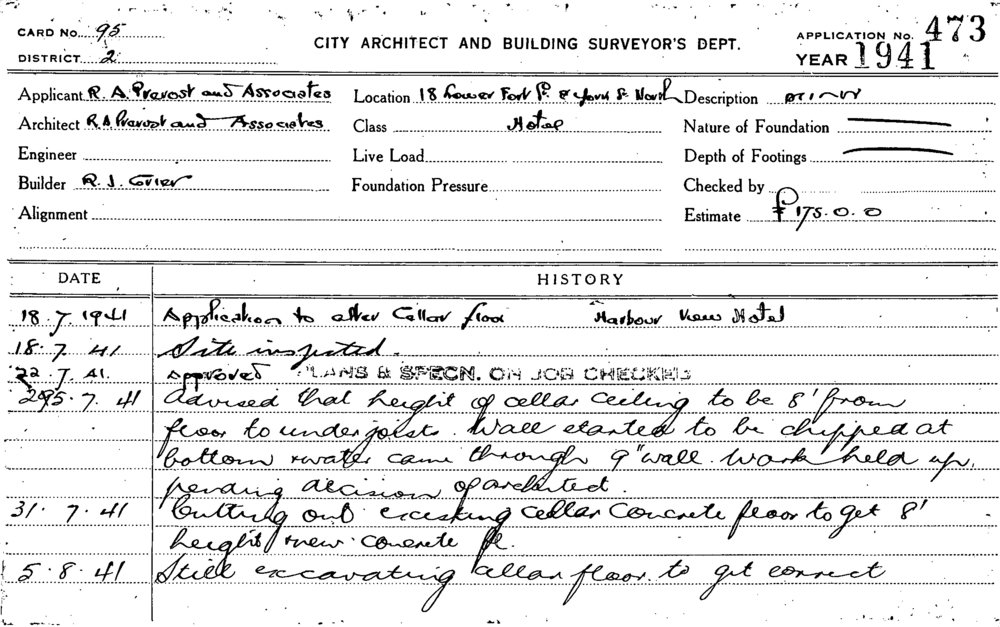 CARD No. 95
DISTRICT 2
CITY ARCHITECT AND BUILDING SURVEYOR'S DEPT.
APPLICATION No. 473
YEAR 1941
Applicant R. A. Prevost and Associates
Location 18 Lower Fort St. & York St North
Description
Architect R A Prevost and Associates
Class Hotel
Nature of Foundation
Engineer
Live Load
Depth of Footings
Builder R. J.
Foundation Pressure
Checked by
Alignment
Estimate £175.0.0
DATE HISTORY
18.7.1941 Application to alter Cellar floor Harbour View Hotel
18.7.41 Site inspected.
22.7.41. Approved PLANS & SPECN. ON JOB CHECKED
7.41 Advised that height of cellar ceiling to be 8' from
floor to under joists. Wall started to be chipped at
bottom & water came through 9" wall. Work held up,
pending decision of architect.
31.7.41 Cutting out existing cellar concrete floor to get 8'
height & new concrete fl.
5.8.41 Still excavating cellar floor to get correct